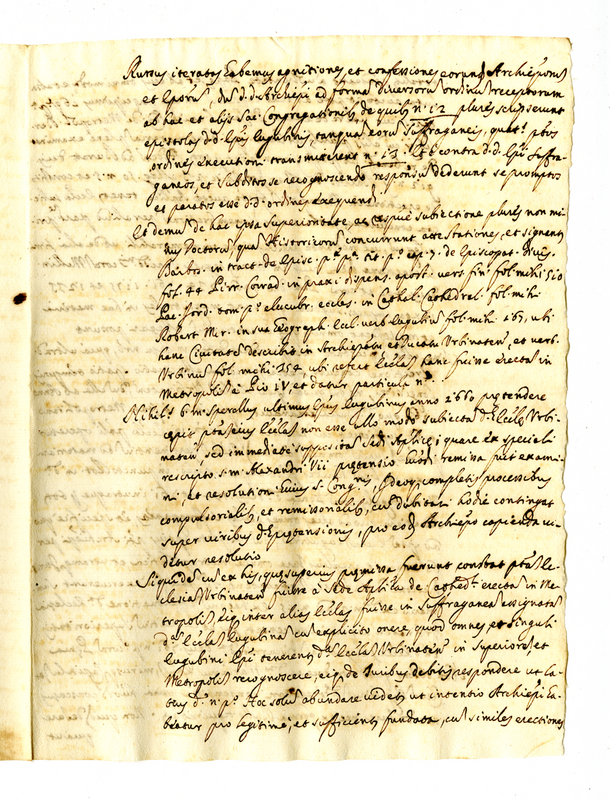 Rursus iteratas habemus agnitiones, et confessiones eorund. Archieporus
et Eporus, dus d. d. Archiepi ad formã diversorũ ordinũ receptorum
ab hac et alijs Sac. Congregationib, de quibus nº 12 plures scripserunt
epistolas d. d. Epis Eugubinis, tanquã eorũ Suffraganeis, quat.s ptos
ordines executioni transmitterent nº 13. Et è contra d. d. Epi suffra-
ganeos, et subditos se recognoscendo responsis dederunt se promptos
et paratos esse d. d. ordines exequendi
Et demus de hac ipsa superioritate, ac respue subiectione plures non mi-
nus Doctorus, quã Historicorus concurrunt attestationes, et signanter
Barbos. in tract. de Episc. pª pª tit. pº cap. 7. de Episcopat. Divis.
fol. 44 Pirr. Corrad. in prax. dispens. apost. vers. fin. fol. mihi 510
Luc. Jord. tom. pº elucubr. eccles. in Cathal. Cathedral. fol. mihi
Robert. Mir. in sua Geograph. Eccl. verb. Eugubius fol. mih. 167, ubi
hanc Civitatẽ describit in Archiepatu et Ducatu Urbinaten, et verb.
Urbinus fol. mihi 354 ubi refert Ecclãs hanc fuisse erectam in
Metropolim à Pio IV, et datur particula nº
Nihilos b. m. Sperellus ultimus Epus Eugubinus anno 1660 prætendere
cepit ptãs eius Ecclãs non esse ullo modo subiectã d. Ecclẽ Urbi-
naten, sed immediatè suppositas Sedi Aplicẹ; quare ex speciali
rescripto s. m. Alexandri VII prætensio huiõi remissa fuit exami-
ni et resolutioni huius S. Congnis, deq. completis processibus
compulsorialib, et remissorialib, cus dubitari hodie contingat
super viribus d. prætensionis, pro eod. Archiepo capienda vi-
detur resolutio
Siquidẽ cus ex his, quæ superius præmissa fuerunt constat ptãs Ec-
clesiãs Urbinaten fuisse à Sede Aplica de Cathed.li erectã in Me-
tropolim, eiq. inter alias Ecclãs fuisse in suffraganeã assignatas
dã Ecclãs Eugubinã cus explicito onere, quod omnes, et singuli
Eugubini Epi tenerent dã Ecclãs Urbinaten in superiores, et
Metropolis recognoscere, eiq. de iuribus debitis respondere ut la-
tius dº nº pº. Hoc solus abundare videtur ut intentio Archiepi ha-
beatur pro legitimè, et sufficienter fundata, cus similes erectiones